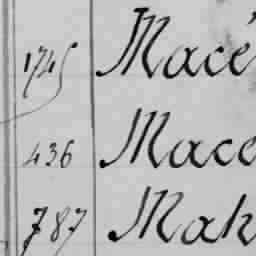 1745 Macé
436 Mace
787 Mah